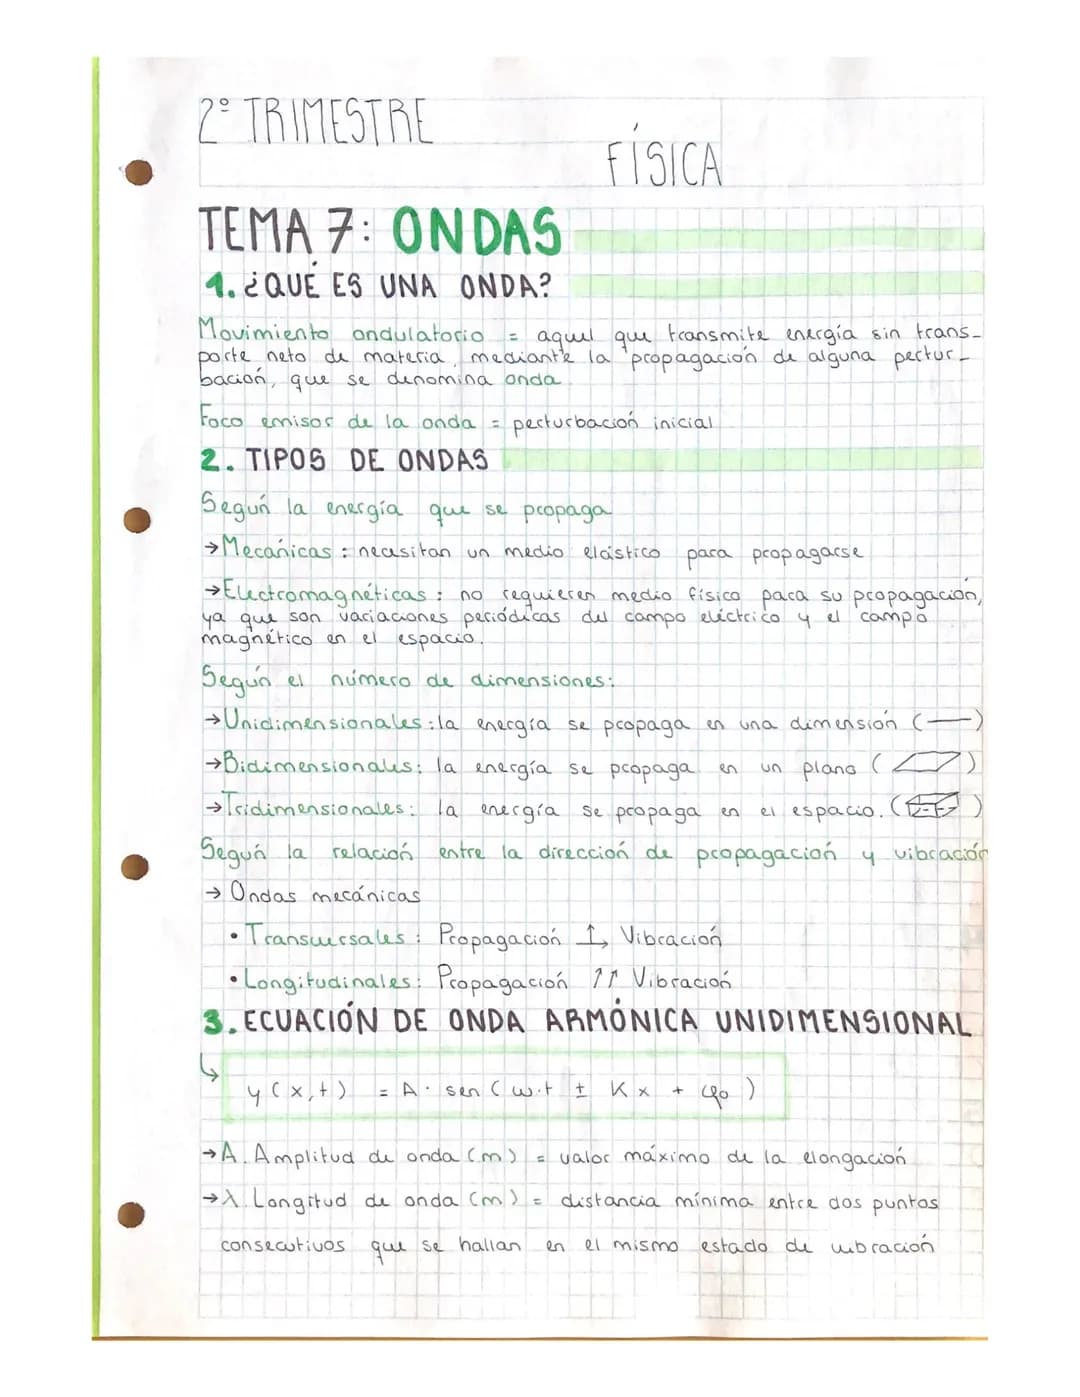 2º TRIMESTRE
FÍSICA
TEMA 7: ONDAS
1. ¿QUÉ ES UNA ONDA?
Movimiento ondulatorio = aquel que transmite energía sin trans-
porte neto de materia, mediante la propagación de alguna pertur-
bación, que se denomina onda
Foco emisor de la onda = perturbación inicial
2. TIPOS DE ONDAS
Según la energía que se propaga
→Mecánicas: necesitan un medio elástico para propagarse
→Electromagnéticas: no requieren medio físico para su propagación,
ya que son variaciones periódicas del campo eléctrico y el campo
magnético en el espacio.
Según el número de dimensiones:
→Unidimensionales: la energía se propaga en una dimensión (—)
→Bidimensionales: la energía se propaga en un plano ( )
→Tridimensionales: la energía se propaga en el espacio. ( )
Según la relación entre la dirección de propagación y vibración
→ Ondas mecánicas
• Transversales: Propagación ↑→ Vibración
• Longitudinales: Propagación ↑↑ Vibración
3. ECUACIÓN DE ONDA ARMÓNICA UNIDIMENSIONAL
↳
y(x,t) = A · sen (w·t ± Kx + φ0)
→A. Amplitud de onda (m) = valor máximo de la elongación
→λ. Longitud de onda (m) = distancia mínima entre dos puntos
consecutivos que se hallan en el mismo estado de vibración